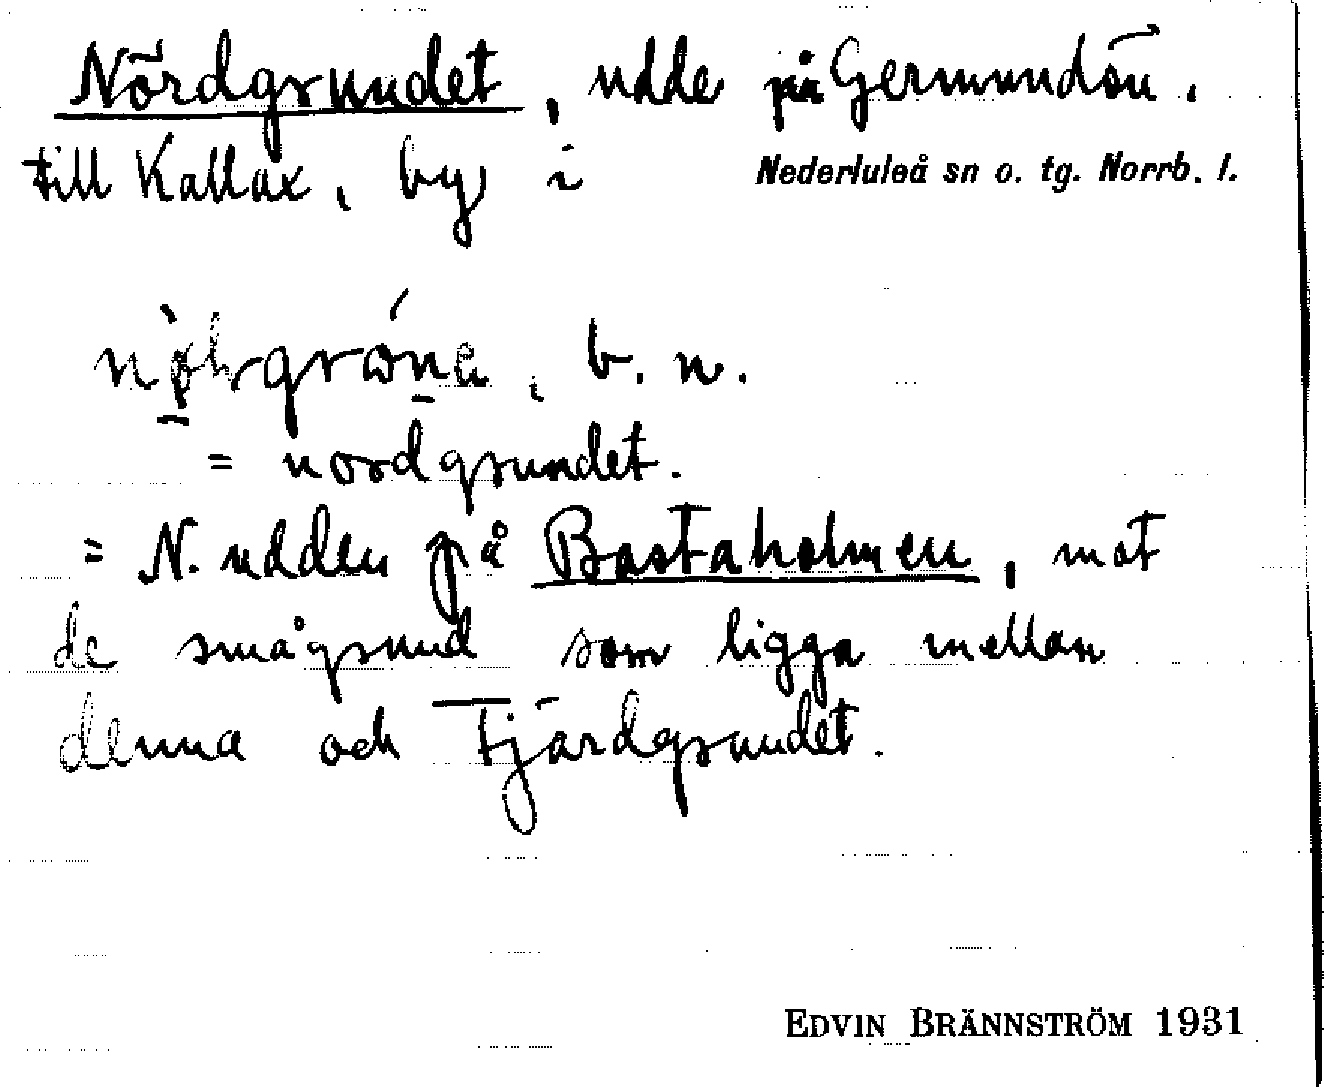 Nördgrundet, udde på Germundön.
till Kallax, by i Nederluleå sn o. tg. Norrb. l.
b. n.
= nordgrundet.
= N. udden på Bastaholmen, mot
de smågrund som ligga mellan
denna och Fjärdgrundet.
EDVIN BRÄNNSTRÖM 1931